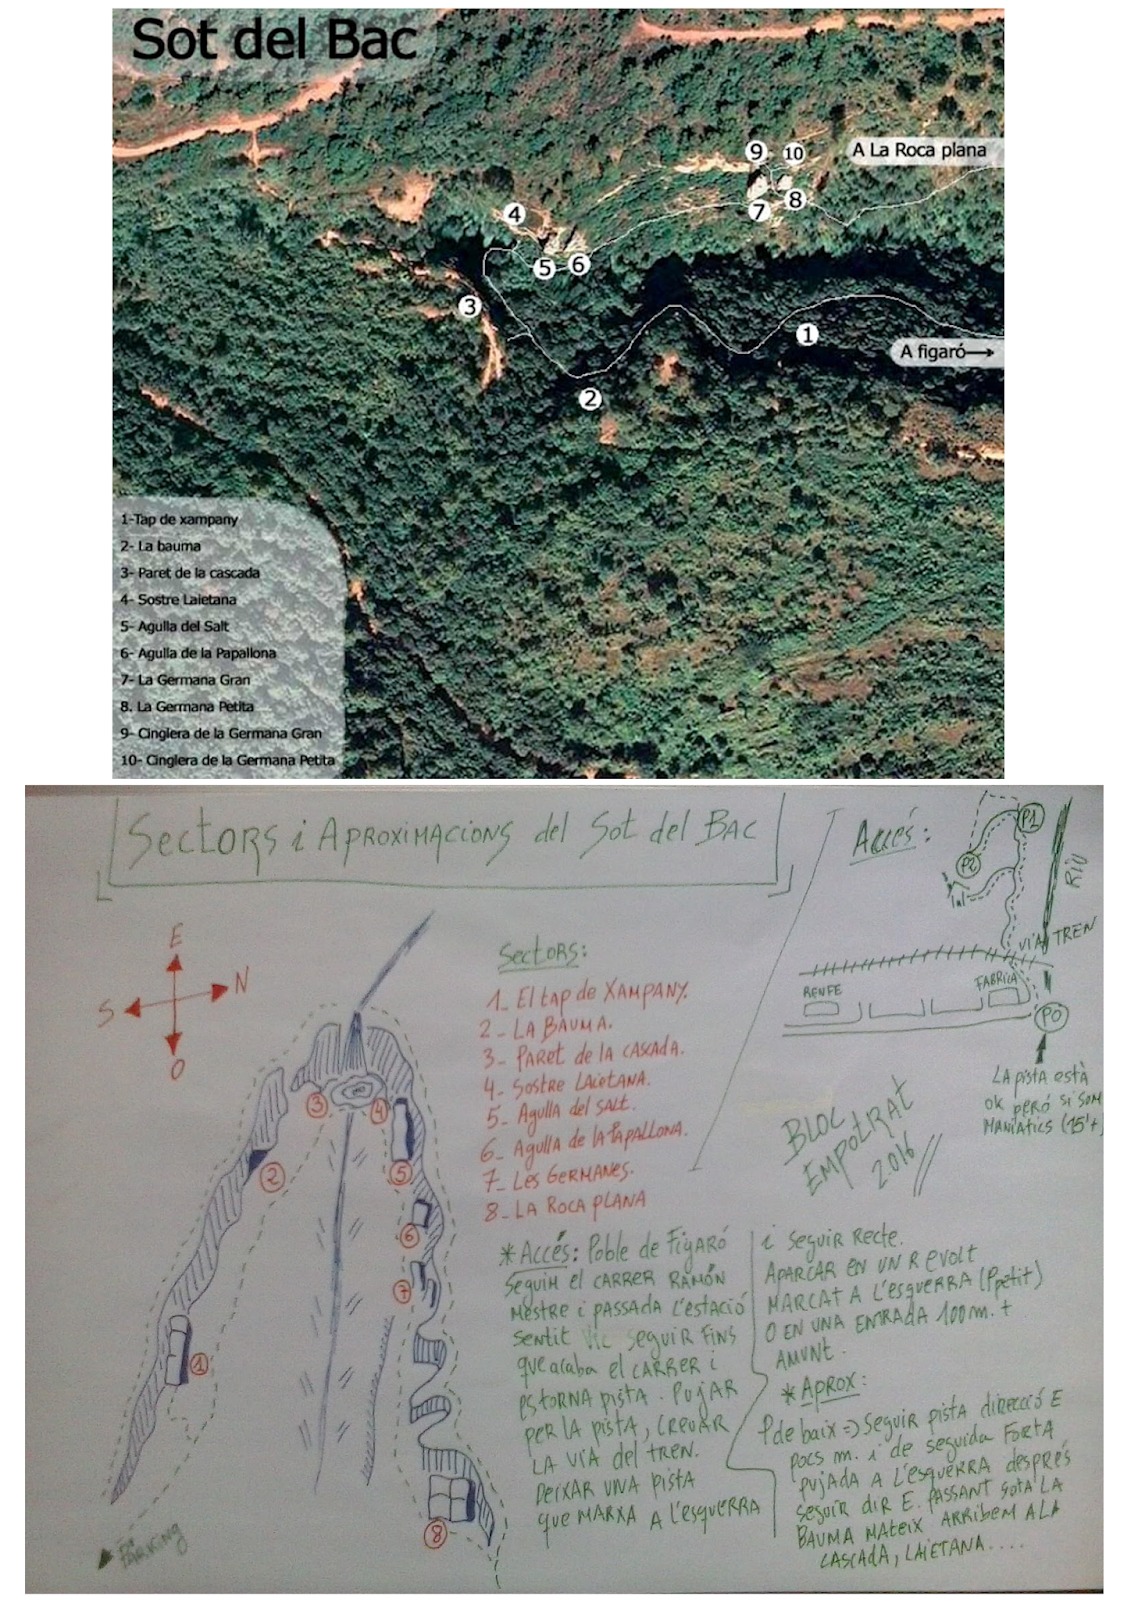 Sot del Bac
9
10
A La Roca plana
8
7
4
5
6
3
1
A figaró
2
1-Tap de xampany
2- La bauma
3- Paret de la cascada
4- Sostre Laietana
5- Agulla del Salt
6- Agulla de la Papallona
7- La Germana Gran
8. La Germana Petita
9- Cinglera de la Germana Gran
10- Cinglera de la Germana Petita
SECTORS i APROXIMACIONS del SOT del BAC
Accés:
P1
P2
RIU
VIA TREN
RENFE
FABRICA
P0
LA pista està
ok però si som
MANIÀTICS (15'+)
E
N
S
O
3
4
2
5
6
7
1
8
PARKING
Sectors:
1_ El tap de XAMPANY.
2_ LA BAUMA.
3_ PARET de la CASCADA.
4_ Sostre LAIETANA.
5_ Agulla del SALT.
6_ Agulla de la PAPALLONA.
7_ Les GERMANES.
8_ LA ROCA PLANA
BLOC
EMPOTRAT
2016
* Accés: Poble de Figaró
Seguim el CARRER RAMÓN
Mestre i PASSADA L'ESTACIÓ
sentit Vic seguir FINS
que acaba el CARRER i
es TORNA pista. Pujar
per LA pista, CREUAR
LA VIA del TREN.
Deixar UNA pista
que MARXA A l'esquerra
i seguir Recte.
APARCAR en UN REVOLT
MARCAT A l'esquerra (Ppetit)
O EN UNA ENTRADA 100m. +
AMUNT.
* Aprox:
P de baix => Seguir pista direcció E
pocs m. i de seguida FORTA
pujada A l'esquerra després
seguir dir E. PASSANT sota LA
BAUMA MATEIX ARRIBEM A LA
CASCADA, LAIETANA....